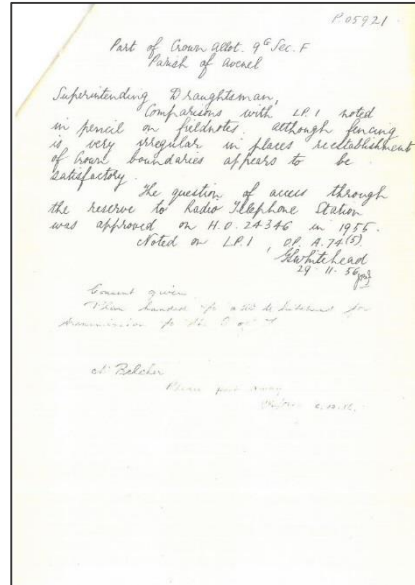 P05921
Part of Crown Allot. 9G Sec. F
Parish of Avenel
Superintending Draughtsman,
Comparisons with L.P. 1 noted
in pencil on fieldnotes, although fencing
is very irregular in places reestablishment
of Crown boundaries appears to be
satisfactory.
The question of access through
the reserve to Radio Telephone Station
was approved on H.O. 24346 in 1955.
Noted on L.P. 1, O.P. A.74(5)
GWhitehead
29-11-56
Consent given
Plan handed to
transmission to the
Mr Belcher
Please put away